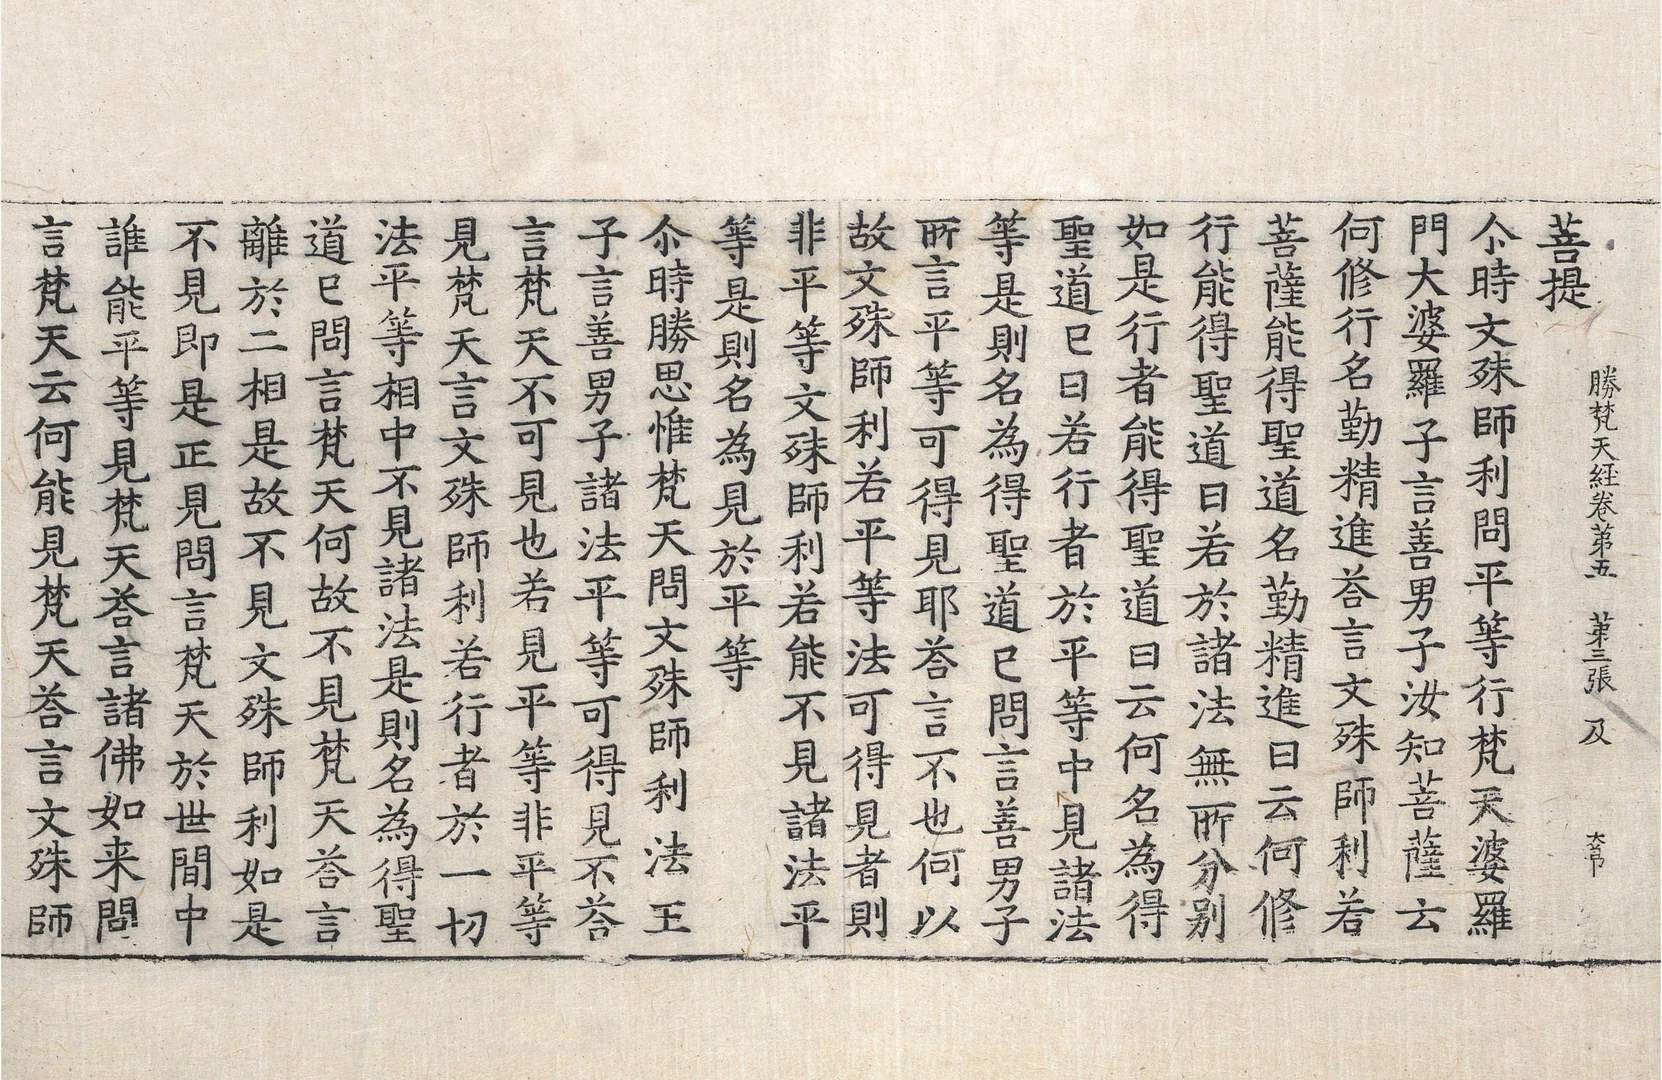 勝梵天経卷第五　第三張　及
菩提
尒時文殊師利問平等行梵天婆羅
門大婆羅子言善男子汝知菩薩云
何修行名勤精進荅言文殊師利若
菩薩能得聖道名勤精進曰云何修
行能得聖道曰若於諸法無所分別
如是行者能得聖道曰云何名為得
聖道已曰若行者於平等中見諸法
等是則名為得聖道已問言善男子
所言平等可得見耶荅言不也何以
故文殊師利若平等法可得見者則
非平等文殊師利若能不見諸法平
等是則名為見於平等
尒時勝思惟梵天問文殊師利法王
子言善男子諸法平等可得見不荅
言梵天不可見也若見平等非平等
見梵天言文殊師利若行者於一切
法平等相中不見諸法是則名為得聖
道已問言梵天何故不見梵天荅言
離於二相是故不見文殊師利如是
不見即是正見問言梵天於世間中
誰能平等見梵天荅言諸佛如来問
言梵天云何能見梵天荅言文殊師